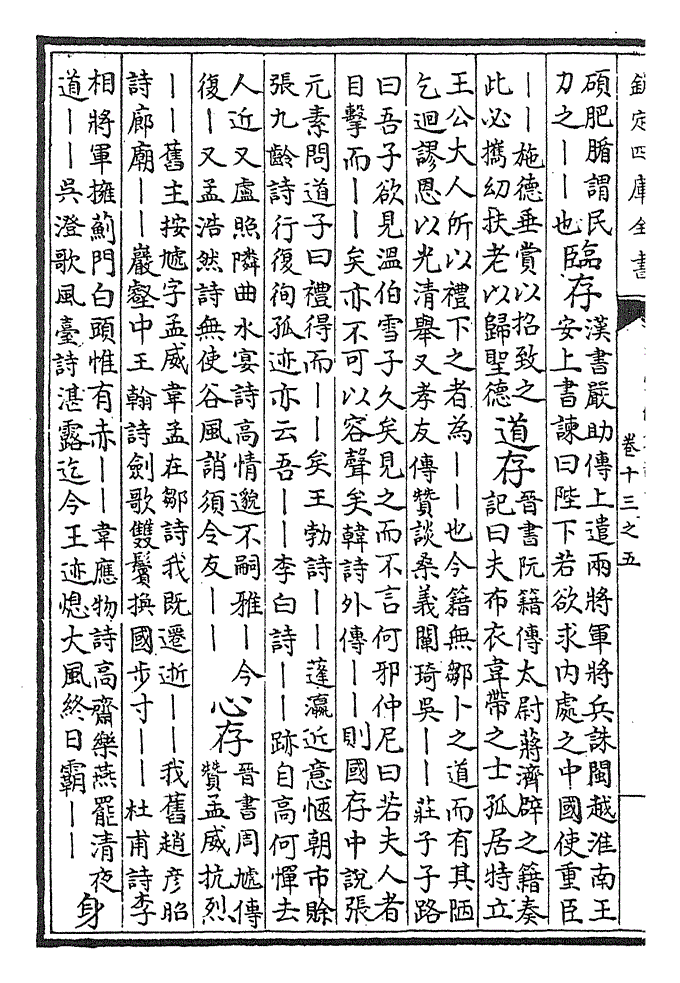 欽定四庫全書
卷十三之五
碩肥腯謂民
力之——也
臨存
漢書嚴助傳上遣兩將軍將兵誅閩越淮南王
安上書諫曰陛下若欲求内處之中國使重臣
——施德垂賞以招致之
此必攜幼扶老以歸聖德
道存
晉書阮籍傳太尉蔣濟辟之籍奏
記曰夫布衣韋帶之士孤居特立
王公大人所以禮下之者為——也今籍無鄒卜之道而有其陋
乞迴謬恩以光清舉又孝友傳贊談桑義闡琦吳——莊子子路
曰吾子欲見溫伯雪子久矣見之而不言何邪仲尼曰若夫人者
目擊而——矣亦不可以容聲矣韓詩外傳——則國存中說張
元素問道子曰禮得而——矣王勃詩——蓬瀛近意愜朝市賒
張九齡詩行復徇孤迹亦云吾——李白詩——跡自高何憚去
人近又盧照隣曲水宴詩高情邈不嗣雅—今
復—又孟浩然詩無使谷風誚須令友——
心存
晉書周虓傳
贊孟威抗烈
——舊主按虓字孟威韋孟在鄒詩我既遷逝——我舊趙彦昭
詩廊廟——巖壑中王翰詩劍歌雙鬢換國步寸——杜甫詩李
相將軍擁薊門白頭惟有赤——韋應物詩高齋樂燕罷清夜
道——吳澄歌風臺詩湛露迄今王迹熄大風終日霸——
身